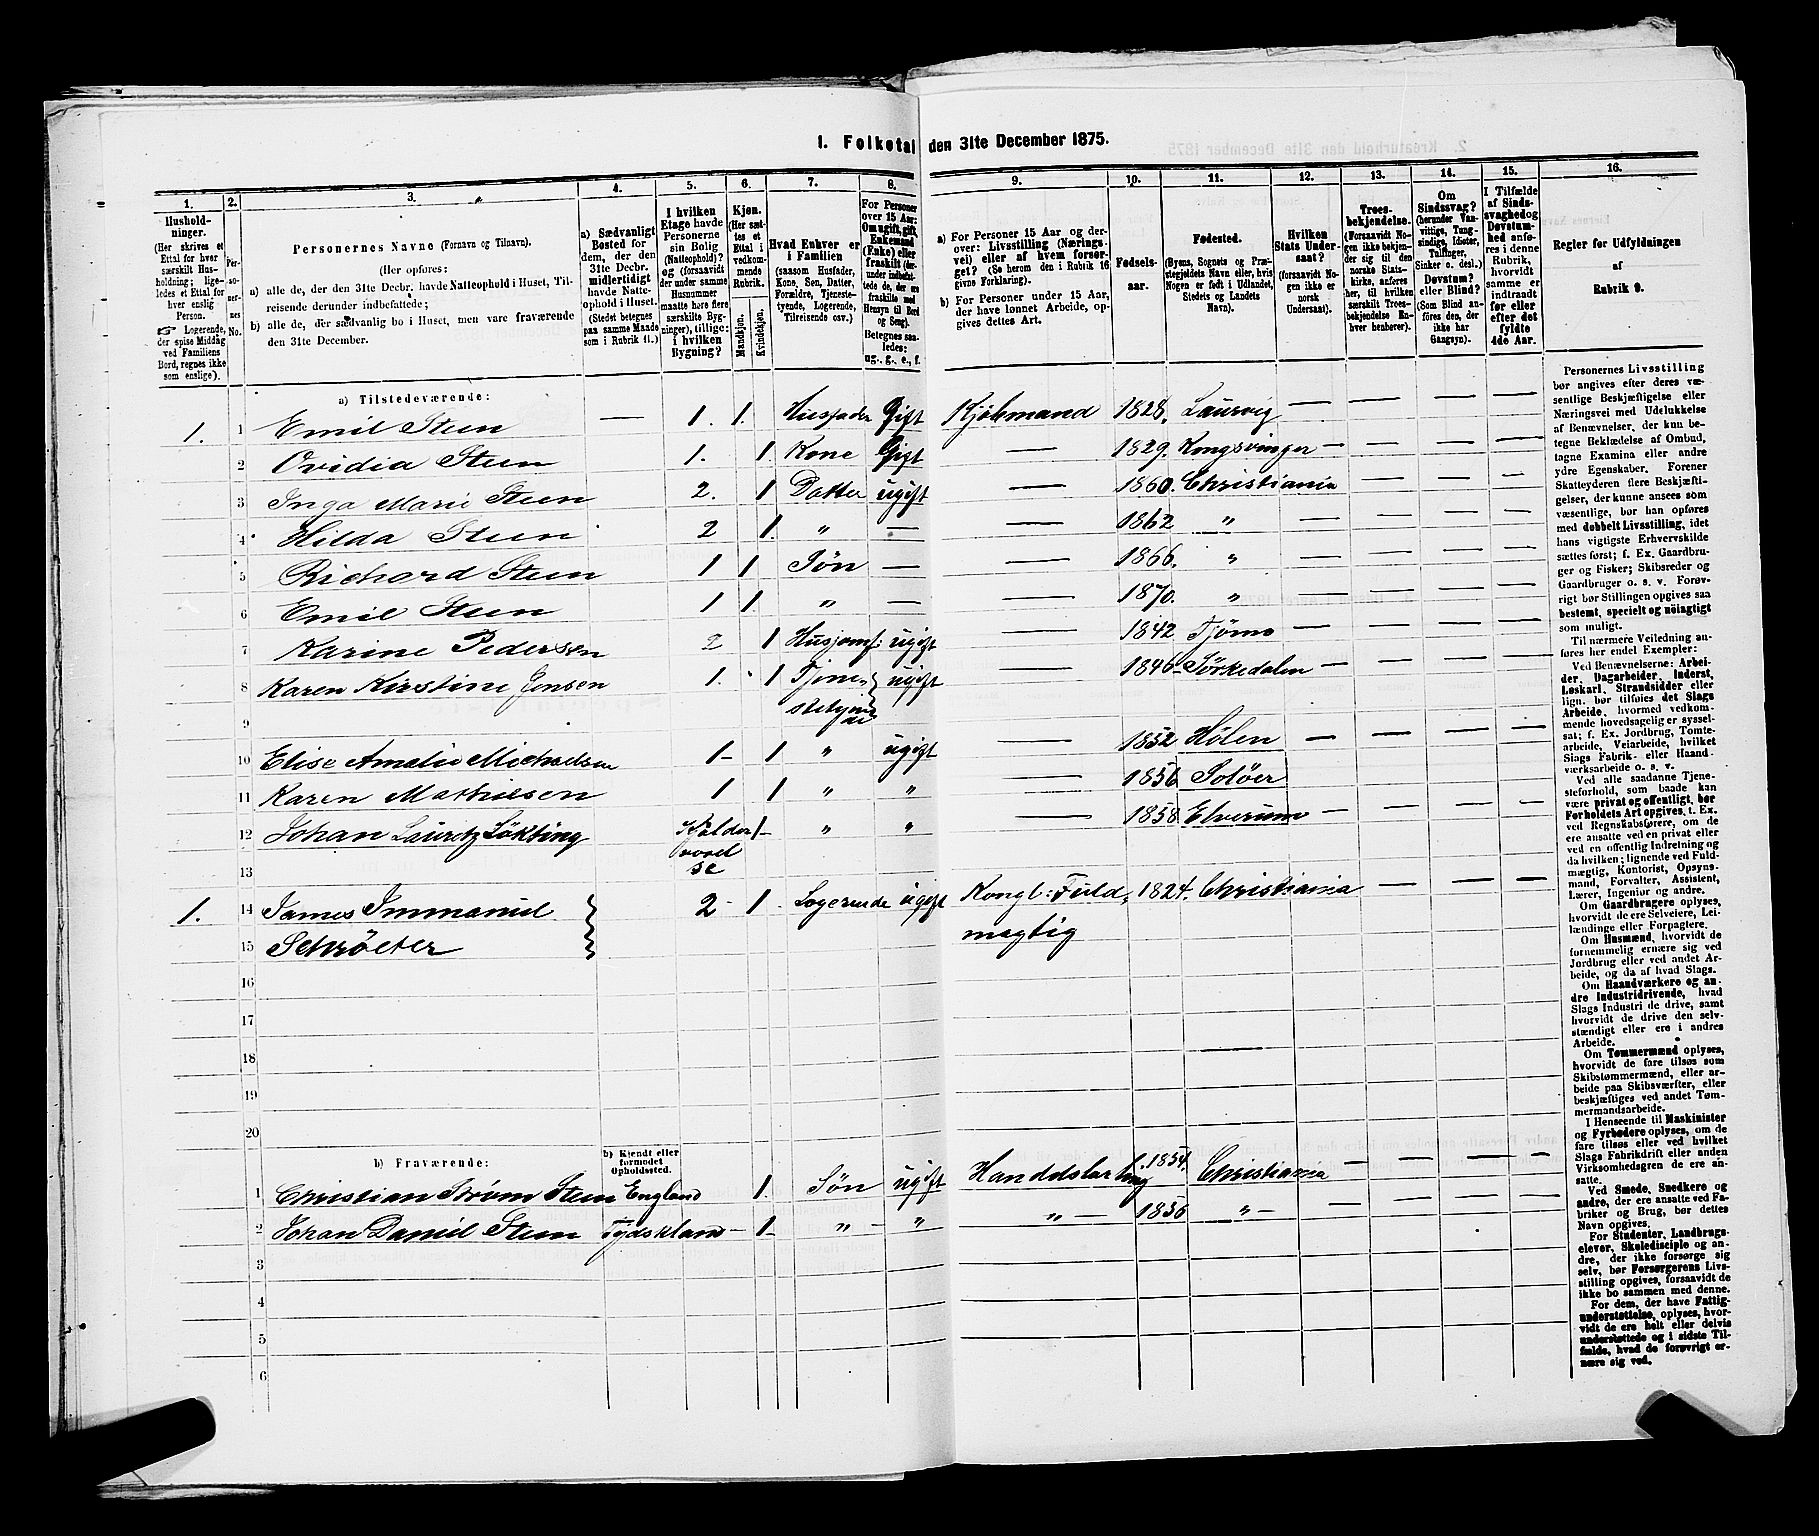 1. Folketal den 31te December 1875.
1. 2. 3. 4. 5. 6. 7. 8. 9. 10. 11. 12. 13. 14. 15. 16.
Husholdninger. (Her skrives et Ettal for hver særskilt Husholdning; ligeledes et Ettal for hver enslig Person. Logerende, der spise Middag ved Familiens Bord, regnes ikke som enslige).
Personernes No.
Personernes Navne (Fornavn og Tilnavn).
(Her opføres:
a) alle de, der den 31te Decbr. havde Natteophold i Huset, Tilreisende derunder indbefattede;
b) alle de, der sædvanlig bo i Huset, men vare fraværende den 31te December.
a) Sædvanligt Bosted for dem, der den 31te Decbr. midlertidigt havde Natteophold i Huset. (Stedet betegnes paa samme Maade som i Rubrik 11.)
I hvilken Etage havde Personerne sin Bolig (Natteophold)? og (forsaavidt der under samme Husnummer maatte høre flere særskilte Bygninger), tillige: i hvilken Bygning?
Kjøn. (Her sættes et Ettal i vedkommende Rubrik.
Mandkjøn. Kvindekjøn.
Hvad Enhver er i Familien (saasom Husfader, Kone, Søn, Datter, Forældre, Tjenestetyende, Logerende, Tilreisende osv.)
For Personer over 15 Aar: Om ugift, gift, Enkemand (Enke) eller fraskilt (derunder indbefattet de, der ere fraskilte med Hensyn til Bord og Seng). Betegnes saaledes: ug., g., e., f.
a) For Personer 15 Aar og derover: Livsstilling (Næringsvei) eller af hvem forsørget? (Se herom den i Rubrik 16 givne Forklaring).
b) For Personer under 15 Aar, der have lønnet Arbeide, opgives dettes Art.
Fødselsaar.
Fødested. (Byens, Sognets og Præstegjeldets Navn eller, hvis Nogen er født i Udlandet, Stedets og Landets Navn).
Hvilken Stats Undersaat? (forsaavidt Nogen ikke er norsk Undersaat).
Troesbekjendelse. (Forsaavidt Nogen ikke bekjender sig til den norske Statskirke, anføres her, til hvilken særskilt Troesbekjendelse Enhver henhører).
Om Sindssvag? (herunder Vanvittige, Tungsindige, Idioter, Tullinger, Sinker o. desl.) Døvstum? eller Blind? (Som Blind anføres den, der ikke har Gangsyn).
I Tilfælde af Sindssvaghed og Døvstumhed anføres i denne Rubrik, hvorvidt samme er indtraadt før eller efter det fyldte 4de Aar.
Regler for Udfyldningen af Rubrik 9.
a) Tilstedeværende:
1. 1 Emil Steen — 1. 1. Husfader Gift Kjøbmand 1828. Laurvig — — — —
2 Ovidia Steen 1. 1. Kone Gift — 1829. Kongsvinger — — — —
3 Inga Marie Steen 2. 1 Datter ugift — 1860. Christiania — — — —
4 Hilda Steen 2 1. " — — 1862 " — — — —
5 Richard Steen 1 1 Søn — — 1866. " — — — —
6 Emil Steen 1 1. " — — 1870. " — — — —
7 Karine Pedersen 2 1 Husjomf: ugift — 1842 Tjømø — — — —
8 Karen Kirstine Jensen 1. 1 Tjene- ugift — 1846 Sørkedalen — — — —
9 stetyende
10 Elise Amalie Michaelsen 1- 1 " ugift — 1852 Hølen — — — —
11 Karen Mathiesen 1 1 " " — 1856 Soløer
12 Johan Lauritz Løkting Kjelder 1- " " — 1858 Elverum — — — —
13 værelse
1. 14 James Immanuel 2- 1. Logerende ugift Kongl: Fuld- 1824. Christiania — — — —
15 Schrøeter mægtig
16
17
18
19
20
b) Fraværende: b) Kjendt eller formodet Opholdssted.
1 Christian Strøm Steen England 1. Søn ugift Handelslærling 1854. Christiania — — — —
2 Johan Daniel Steen Tydskland — 1- " — " " — 1856 " — — — — —
3
4
5
6
Personernes Livsstilling
bør angives efter deres væ-
sentlige Beskjæftigelse eller
Næringsvei med Udelukkelse
af Benævnelser, der kun be-
tegne Beklædelse af Ombud,
tagne Examina eller andre
ydre Egenskaber. Forener
Skatteyderen flere Beskjæfti-
gelser, der kunne ansees som
væsentlige, bør han opføres
med dobbelt Livsstilling, idet
hans vigtigste Erhvervskilde
sættes først; f. Ex. Gaardbru-
ger og Fisker; Skibsreder og
Gaardbruger o. s. v. Forøv-
rigt bør Stillingen opgives saa
bestemt, specielt og nøiagtigt
som muligt.
Til nærmere Veiledning an-
føres her endel Exempler:
Ved Benævnelserne: Arbei-
der, Dagarbeider, Inderst,
Løskarl, Strandsidder eller
lign. bør tilføies det Slags
Arbeide, hvormed vedkom-
mende hovedsagelig er syssel-
sat; f. Ex. Jordbrug, Tomte-
arbeide, Veiarbeide, hvilket
Slags Fabrik- eller Haand-
værksarbeide o. s. v.
Ved alle saadanne Tjene-
steforhold, som baade kan
være privat og offentligt, bør
Forholdets Art opgives, t. Ex.
ved Regnskabsførere, om de
ere ansatte ved en privat eller
ved en offentlig Indretning og
da hvilken; lignende ved Fuld-
mægtig, Kontorist, Opsyns-
mand, Forvalter, Assistent,
Lærer, Ingeniør og andre.
Om Gaardbrugere oplyses,
hvorvidt de ere Selveiere, Lei-
lændinge eller Forpagtere.
Om Husmænd, hvorvidt de
fornemmelig ernære sig ved
Jordbrug eller ved andet Ar-
beide, og da af hvad Slags.
Om Haandværkere og an-
dre Industridrivende, hvad
Slags Industri de drive, samt
hvorvidt de drive den selv-
stændigt eller ere i andres
Arbeide.
Om Tømmermænd oplyses,
hvorvidt de fare tilsøs som
Skibstømmermænd, eller ar-
beide paa Skibsværfter, eller
beskjæftiges ved andet Tøm-
mermandsarbeide.
I Henseende til Maskinister
og Fyrbødere oplyses, om de
fare tilsøs eller ved hvilket
Slags Fabrikdrift eller anden
Virksomhedsgren de ere an-
satte.
Ved Smede, Snedkere og
andre, der ere ansatte ved Fa-
briker og Brug, bør dettes
Navn opgives.
For Studenter, Landbrugs-
elever, Skoledisciple og an-
dre, der ikke forsørge sig
selv, bør Forsørgerens Livs-
stilling opgives, forsaavidt de
ikke bo sammen med denne.
For dem, der have Fattig-
understøttelse, oplyses, hvor-
vidt de ere helt eller delvis
understøttede og i sidste Til-
fælde, hvad de forøvrigt er-
nære sig ved.